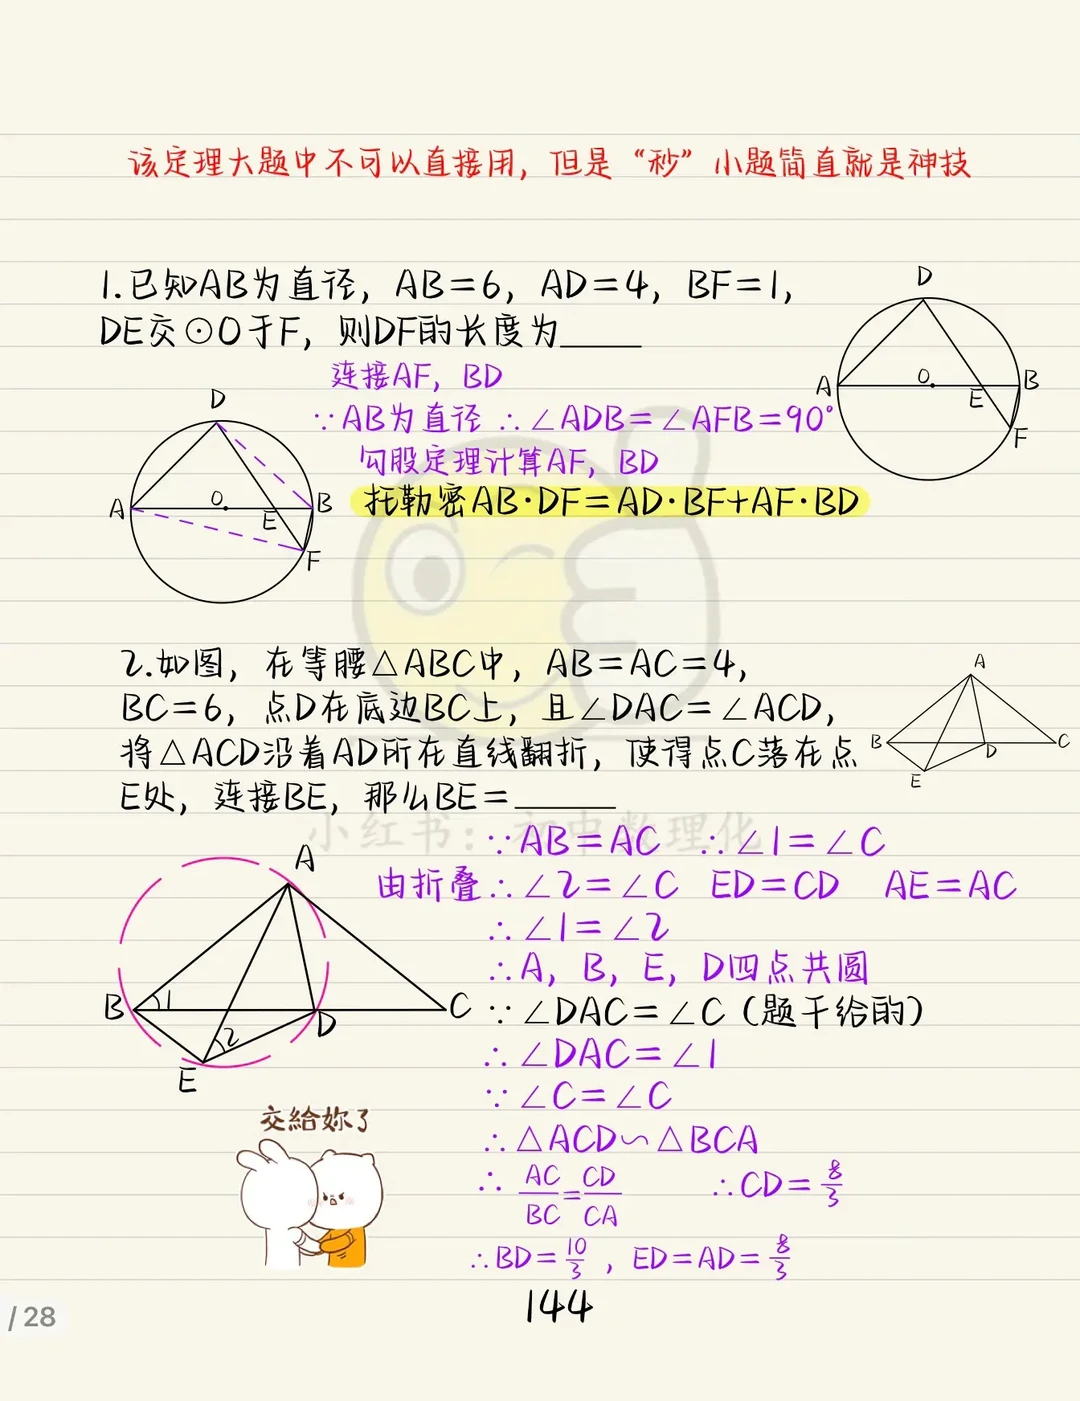 该定理大题中不可以直接用，但是“秒”小题简直就是神技
1.已知AB为直径，AB=6，AD=4，BF=1，
DE交⊙O于F，则DF的长度为____
连接AF，BD
∵AB为直径 ∴∠ADB=∠AFB=90°
勾股定理计算AF，BD
托勒密AB·DF=AD·BF+AF·BD
D
A
O
B
E
F
D
A
O
B
E
F
2.如图，在等腰△ABC中，AB=AC=4，
BC=6，点D在底边BC上，且∠DAC=∠ACD，
将△ACD沿着AD所在直线翻折，使得点C落在点
E处，连接BE，那么BE=____
A
B
D
C
E
小红书：初中数理化
∵AB=AC ∴∠1=∠C
由折叠∴∠2=∠C ED=CD AE=AC
∴∠1=∠2
∴A，B，E，D四点共圆
∵∠DAC=∠C（题干给的）
∴∠DAC=∠1
∵∠C=∠C
∴△ACD∽△BCA
∴AC/BC=CD/CA ∴CD=8/3
∴BD=10/3，ED=AD=8/3
A
B
1
C
2
D
E
交給妳了
144
/28